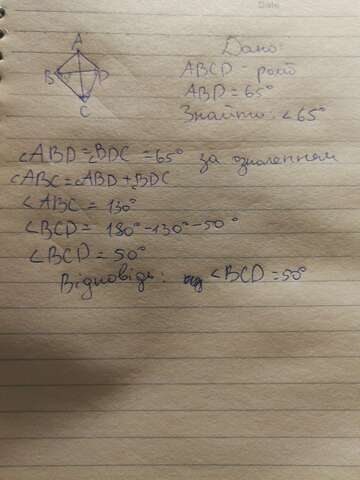 A
B
D
C
Дано:
ABCD - ромб
ABD = 65°
Знайти: ∠65°
∠ABD = ∠BDC = 65° за означенням
∠ABC = ∠ABD + ∠BDC
∠ABC = 130°
∠BCD = 180° - 130° - 50°
∠BCD = 50°
Відповідь: ∠BCD = 50°